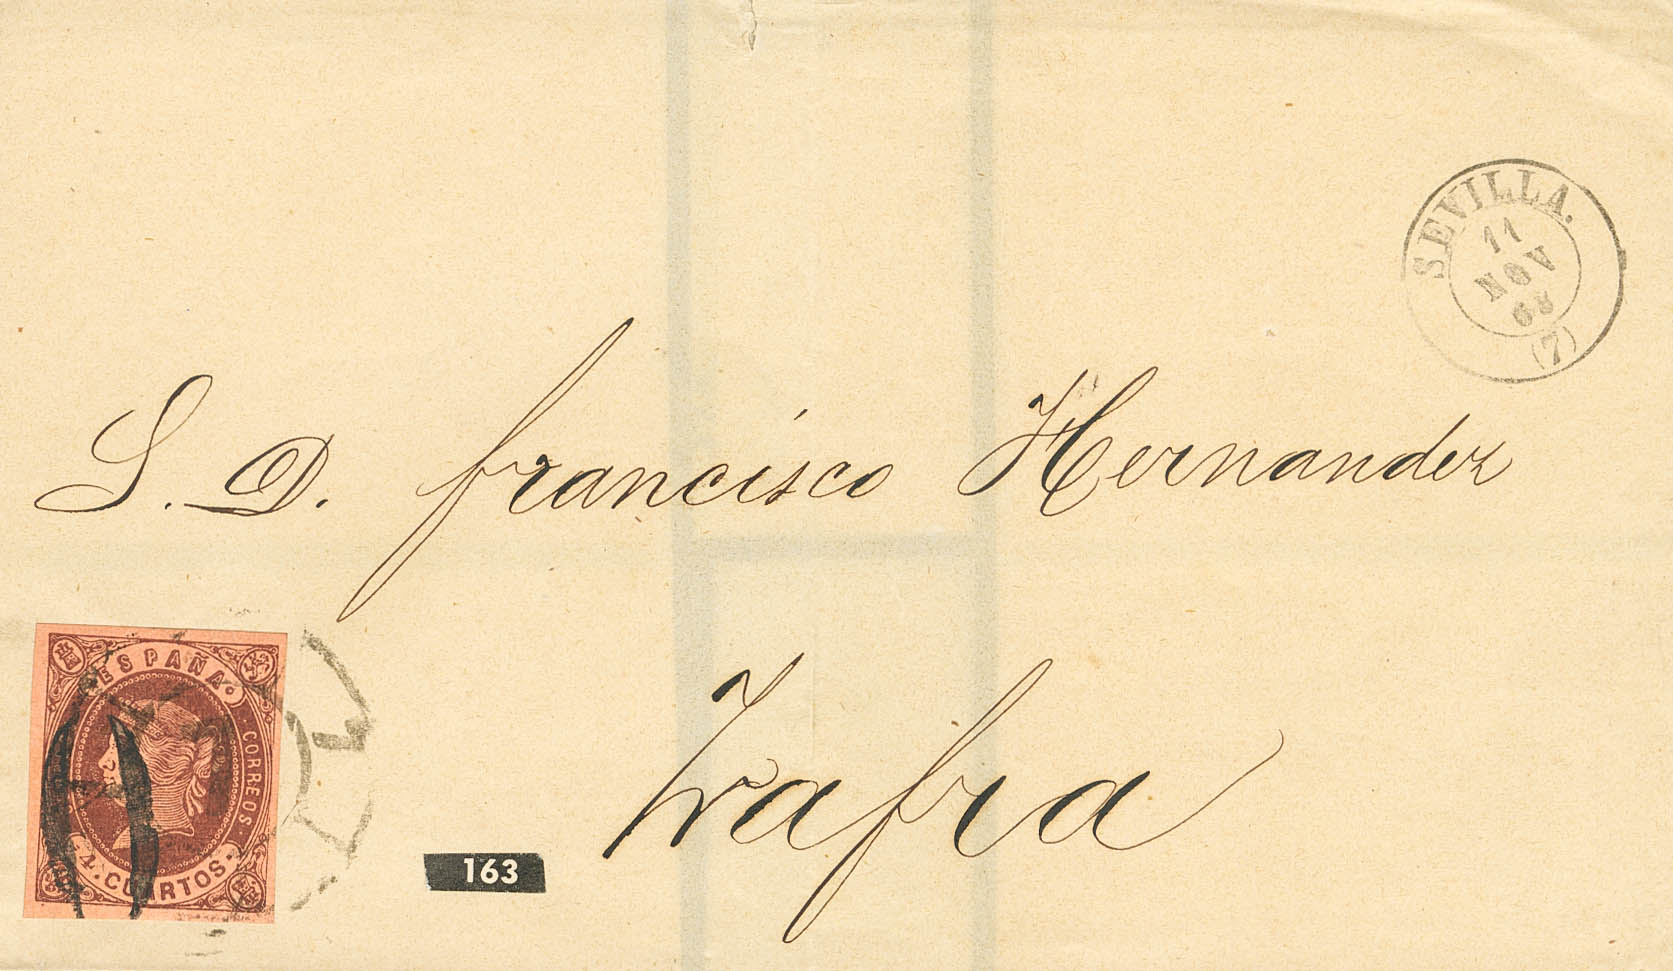 SEVILLA.
11
NOV
63
(7)
S. D. francisco Hernandez
Zafra
ESPAÑA
CORREOS
4 CUARTOS
163